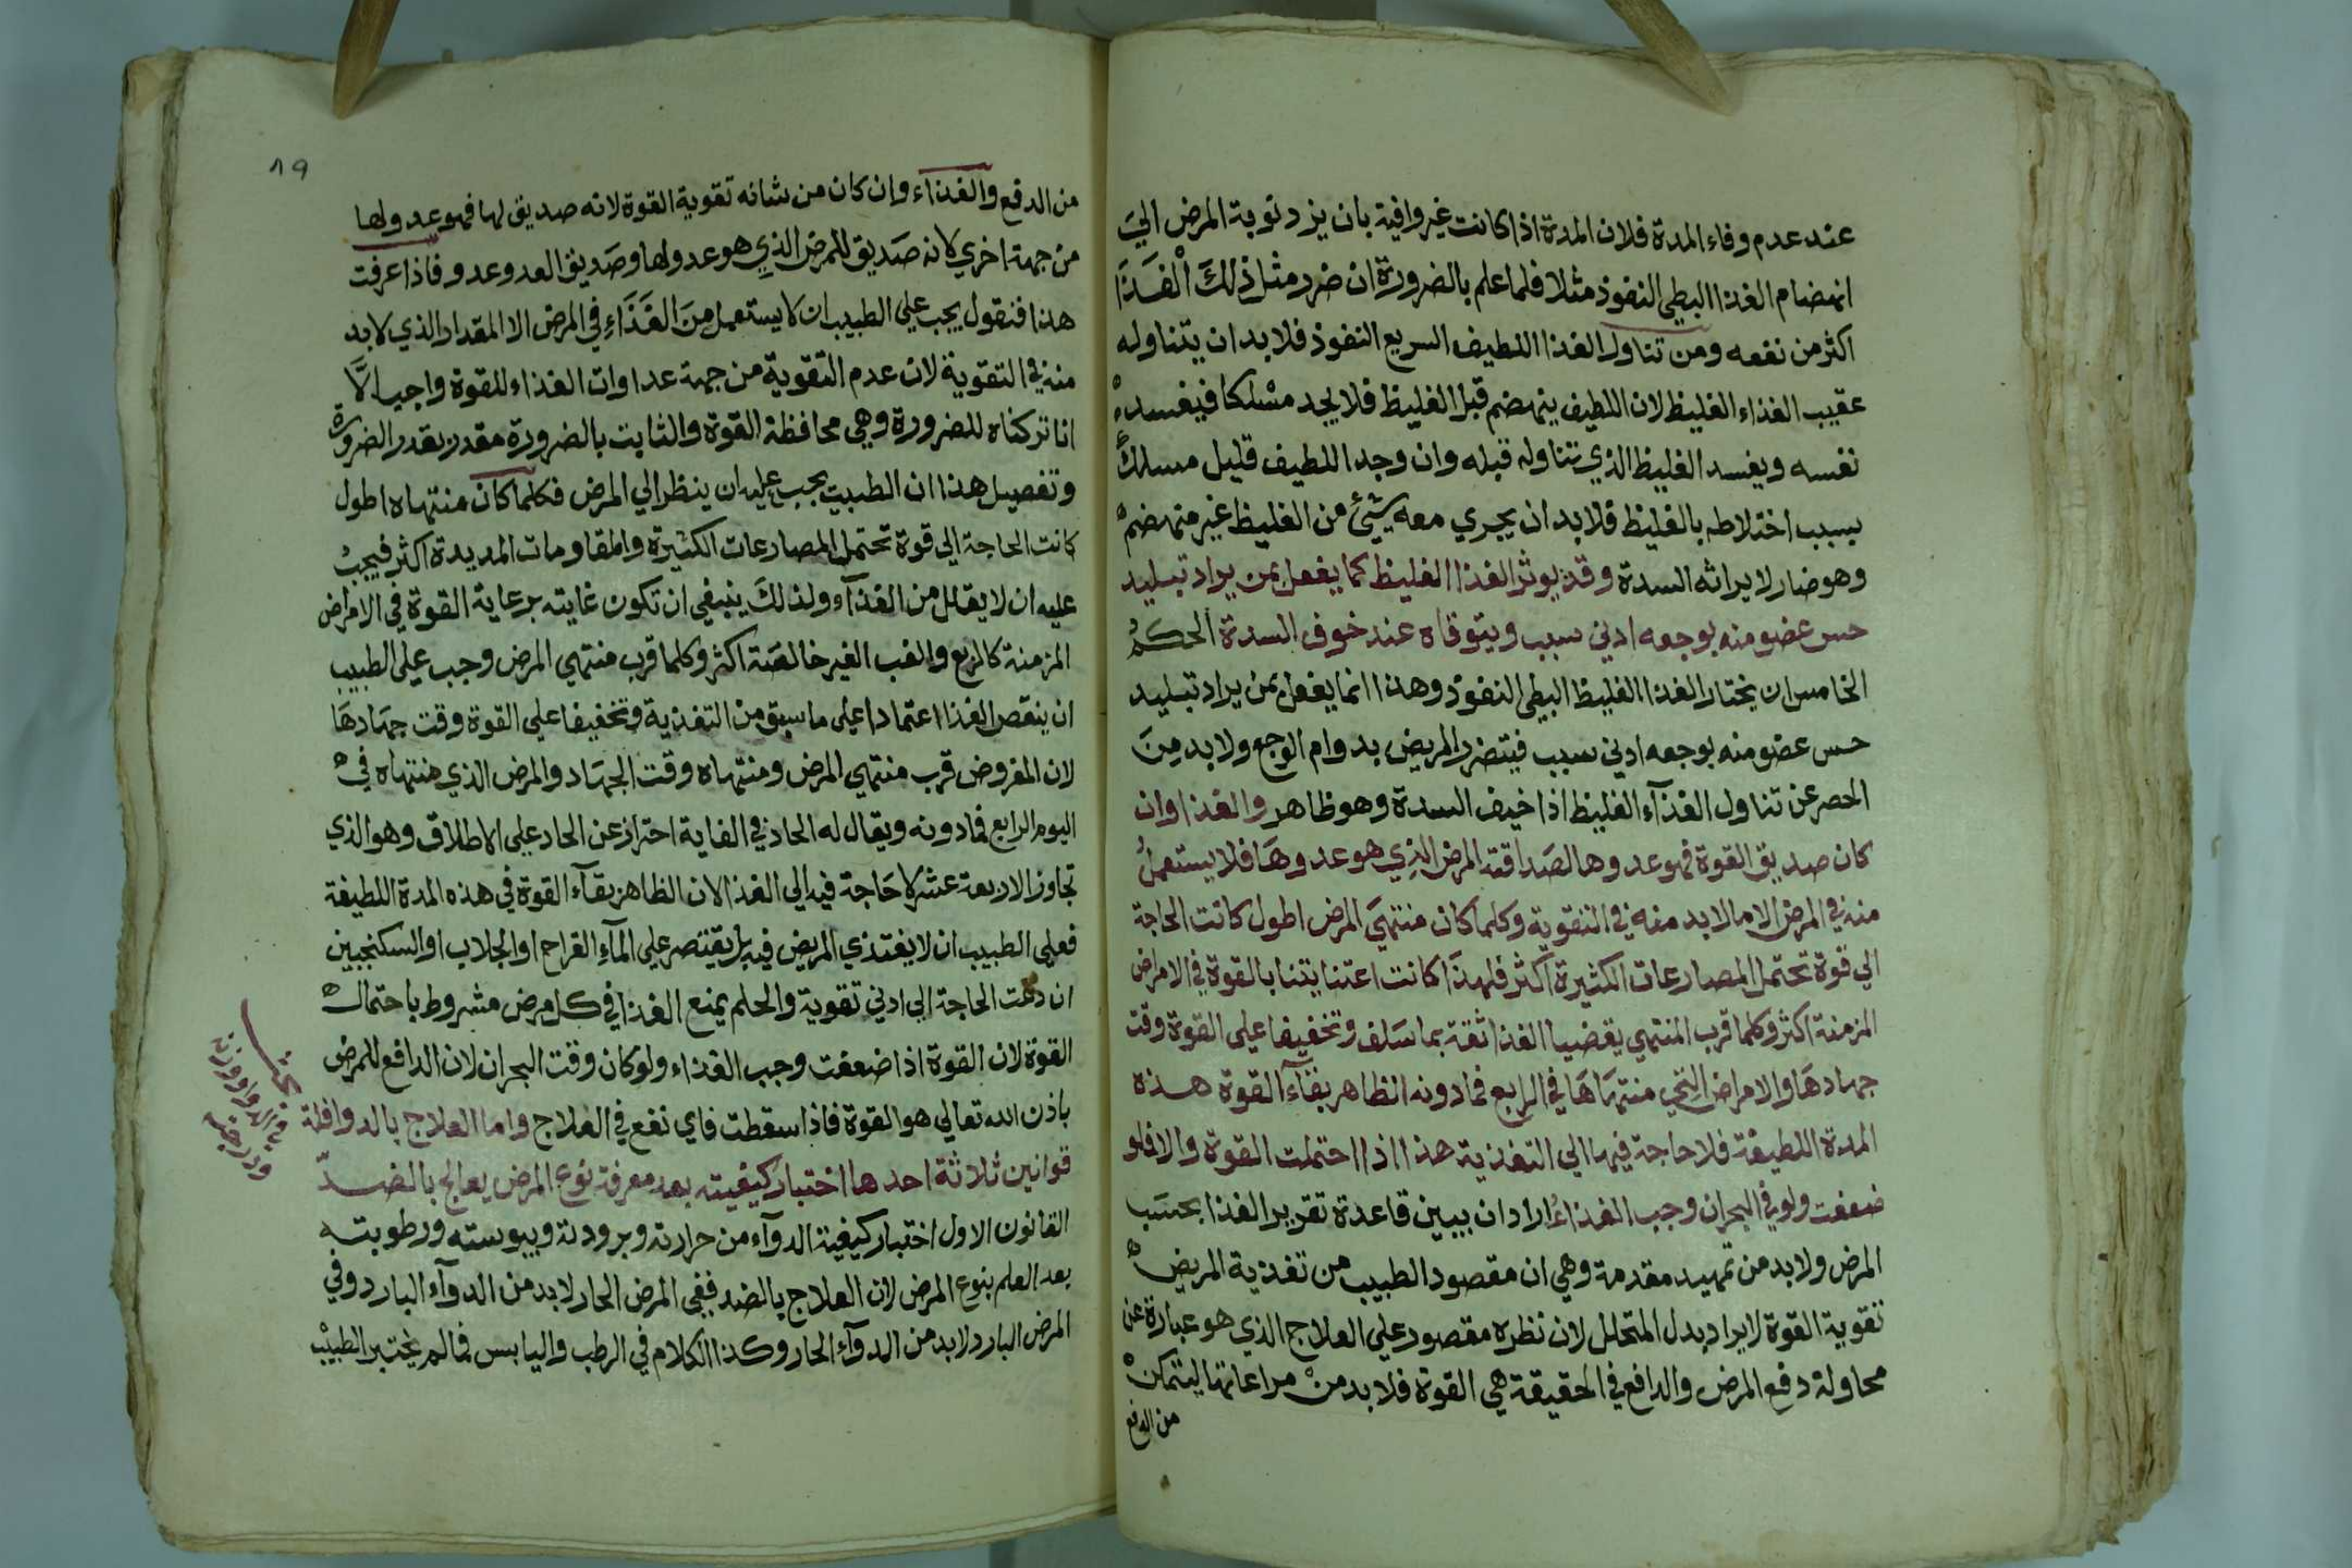 عند عدم وفاء المدة فلان المدة اذا كانت غير وافية بان يزد نوبة المرض الي
انهضام الغذا البطي النفوذ مثلا فلما علم بالضرورة ان ضرر مثل ذلك الغذا
اكثر من نفعه ومن تناول الغذا اللطيف السريع النفوذ فلا بد ان يتناوله
عقيب الغذاء الغليظ لان اللطيف ينهضم قبل الغليظ فلا يجد مسلكا فيفسد
نفسه ويفسد الغليظ الذي تناوله قبله وان وجد اللطيف قليل مسلك
بسبب اختلاطه بالغليظ فلا بد ان يجري معه شيئ من الغليظ غير منهضم
وهو ضار لايراثه السدة وقد يوثر الغذا الغليظ كما يفعل بمن يراد تبليد
حس عضو منه بوجعه ادني سبب ويتوقاه عند خوف السدة الحكم
الخامس ان يختار الغذا الغليظ البطي النفوذ وهذا انما يفعل بمن يراد تبليد
حس عضو منه بوجعه ادني سبب فيتضرر المريض بدوام الوجع ولا بد من
الحصر عن تناول الغذآء الغليظ اذا خيف السدة وهو ظاهر والغذا وان
كان صديق القوة فهو عدوها لصداقته المرض الذي هو عدوها فلا يستعمل
منه في المرض الا ما لا بد منه في التقوية وكلما كان منتهي المرض اطول كانت الحاجة
الي قوة تحتمل المصارعات الكثيرة اكثر فلهذا كانت اعتنايتنا بالقوة في الامراض
المزمنة اكثر وكلما قرب المنتهي يقضيا الغذا ثقة بما سلف وتخفيفا علي القوة وقت
جهادها والامراض التي منتهاها في الرابع فمادونه الظاهر بقاآ القوة هذه
المدة اللطيفة فلا حاجة فيها الي التغذية هذا اذا احتملت القوة والا فلو
ضعفت ولو في البحران وجب الغذاء اراد ان يبين قاعدة تقرير الغذا بحسب
المرض ولا بد من تمهيد مقدمة وهي ان مقصود الطبيب من تغذية المريض
تقوية القوة لايراد بدل المتحلل لان نظره مقصود علي العلاج الذي هو عبارة عن
محاولة دفع المرض والدافع في الحقيقة هي القوة فلا بد من مراعاتها ليتمكن
من الدفع
١٩
من الدفع والغذاء وان كان من شانه تقوية القوة لانه صديق لها فهو عدو لها
من جهة اخري لانه صديق للمرض الذي هو عدو لها وصديق العدو عدو فاذا عرفت
هذا فنقول يجب علي الطبيب ان لا يستعمل من الغذاء في المرض الا المقدار الذي لا بد
منه في التقوية لان عدم التقوية من جهة عداوات الغذاء للقوة واجيا الا
انا تركناه للضرورة وهي محافظة القوة والثابت بالضرورة مقدر بقدر الضرورة
وتفصيل هذا ان الطبيب يجب عليه ان ينظر الي المرض فكلما كان منتهاه اطول
كانت الحاجة الي قوة تحتمل المصارعات الكثيرة والمقاومات المديدة اكثر فيجب
عليه ان لا يقلل من الغذآء ولذلك ينبغي ان تكون غايته برعاية القوة في الامراض
المزمنة كالربع والغب الغير خالصة اكثر وكلما قرب منتهي المرض وجب علي الطبيب
ان ينقص الغذا اعتمادا علي ما سبق من التغذية وتخفيفا علي القوة وقت جهادها
لان المفروض قرب منتهي المرض ومنتهاه وقت الجهاد والمرض الذي منتهاه في
اليوم الرابع فمادونه ويقال له الحاد في الغاية احتراز عن الحاد علي الاطلاق وهو الذي
تجاوز الاربعة عشر لا حاجة فيه الي الغذا لان الظاهر بقآء القوة في هذه المدة اللطيفة
فعلي الطبيب ان لا يغتذي المريض فيه بل يقتصر علي المآء القراح او الجلاب او السكنجبين
ان دعت الحاجة الي ادني تقوية والحلم يمنع الغذا في كل مرض مشروط باحتمال
القوة لان القوة اذا ضعفت وجب الغذاء ولو كان وقت البحران لان الدافع للمرض
باذن الله تعالي هو القوة فاذا سقطت فاي نفع في العلاج واما العلاج بالدوا فلة
قوانين ثلاثة احدها اختبار كيفيته بعد معرفة نوع المرض يعالج بالضد
القانون الاول اختبار كيفية الدوآء من حرارته وبرودته ويبوسته ورطوبته
بعد العلم بنوع المرض لان العلاج بالضد ففي المرض الحار لا بد من الدوآء البارد وفي
المرض البارد لا بد من الدوآء الحار وكذا الكلام في الرطب واليابس فمالم يختبر الطبيب
بحث
في الدوا ووزنه
ودرجته